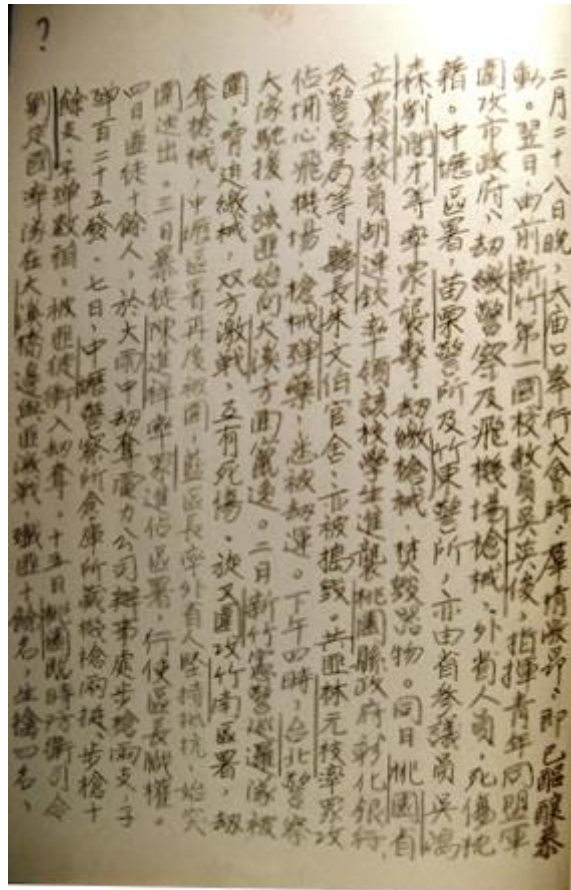 ?
二月二十八日晚，大庙口举行大會時，羣情激昂，即已醞釀暴
動。翌日，由前新竹第一國校教員吳英俊，指揮青年同盟軍
圍攻市政府，劫繳警察及飛機場槍械，外省人員，死傷
藉。中壢區署，苗栗警所及竹東警所，亦由省参議員吳鴻
森劉 才等率眾襲擊，劫繳槍械，焚毀器物。同日桃園省
立農校教員胡連欽率領該校學生進襲桃園縣政府，彰化銀行，
及警察局等，縣長朱文伯官舍，亦被搗毀。共匪林元枝率眾攻
佔埔心飛機場，槍械彈藥，迭被劫運。下午四時，台北警察
大隊馳援，該匪始向大溪方面竄逸。二日新竹憲警巡邏隊被
圍，脅迫繳械，双方激戰，互有死傷。旋又圍攻竹南區署，劫
奪槍械，中壢區署再度被圍，莊區長率外省人堅持抵抗，始突
圍逃出。三日暴徒陳進祥率眾進佔區署，行使區長職權。
四日匪徒十餘人，於大雨中劫奪電力公司辦事處步槍兩支，子
彈百二十五發。七日，中壢警察所倉庫所藏機槍兩挺、步槍十
餘支，子彈數箱，被匪徒衝入劫奪。十五日桃園臨時防衛司令
劉定國率隊在大溪橋邊與匪激戰 殲匪十餘名，生擒四名，